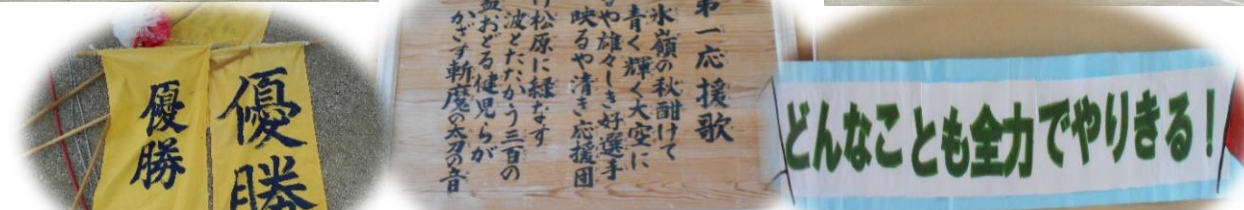 優勝
優勝
第一応援歌
氷嶺の秋酣けて
青く輝く大空に
や雄々しき好選手
映るや清き応援団
松原に緑なす
波とたたかう三百の
おどる健児らが
かざす斬魔の太刀の音
どんなことも全力でやりきる！